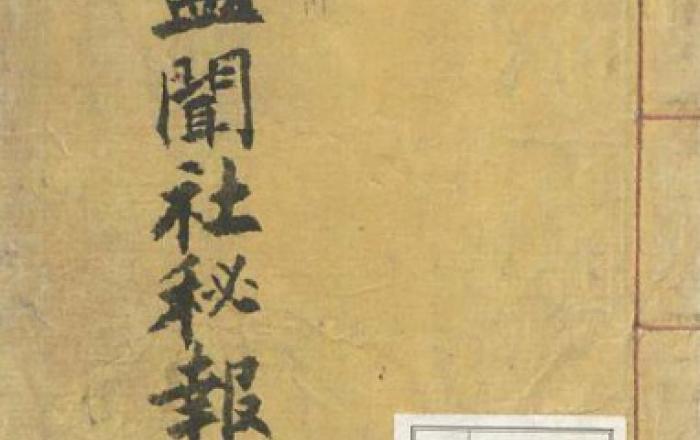 聞社秘報